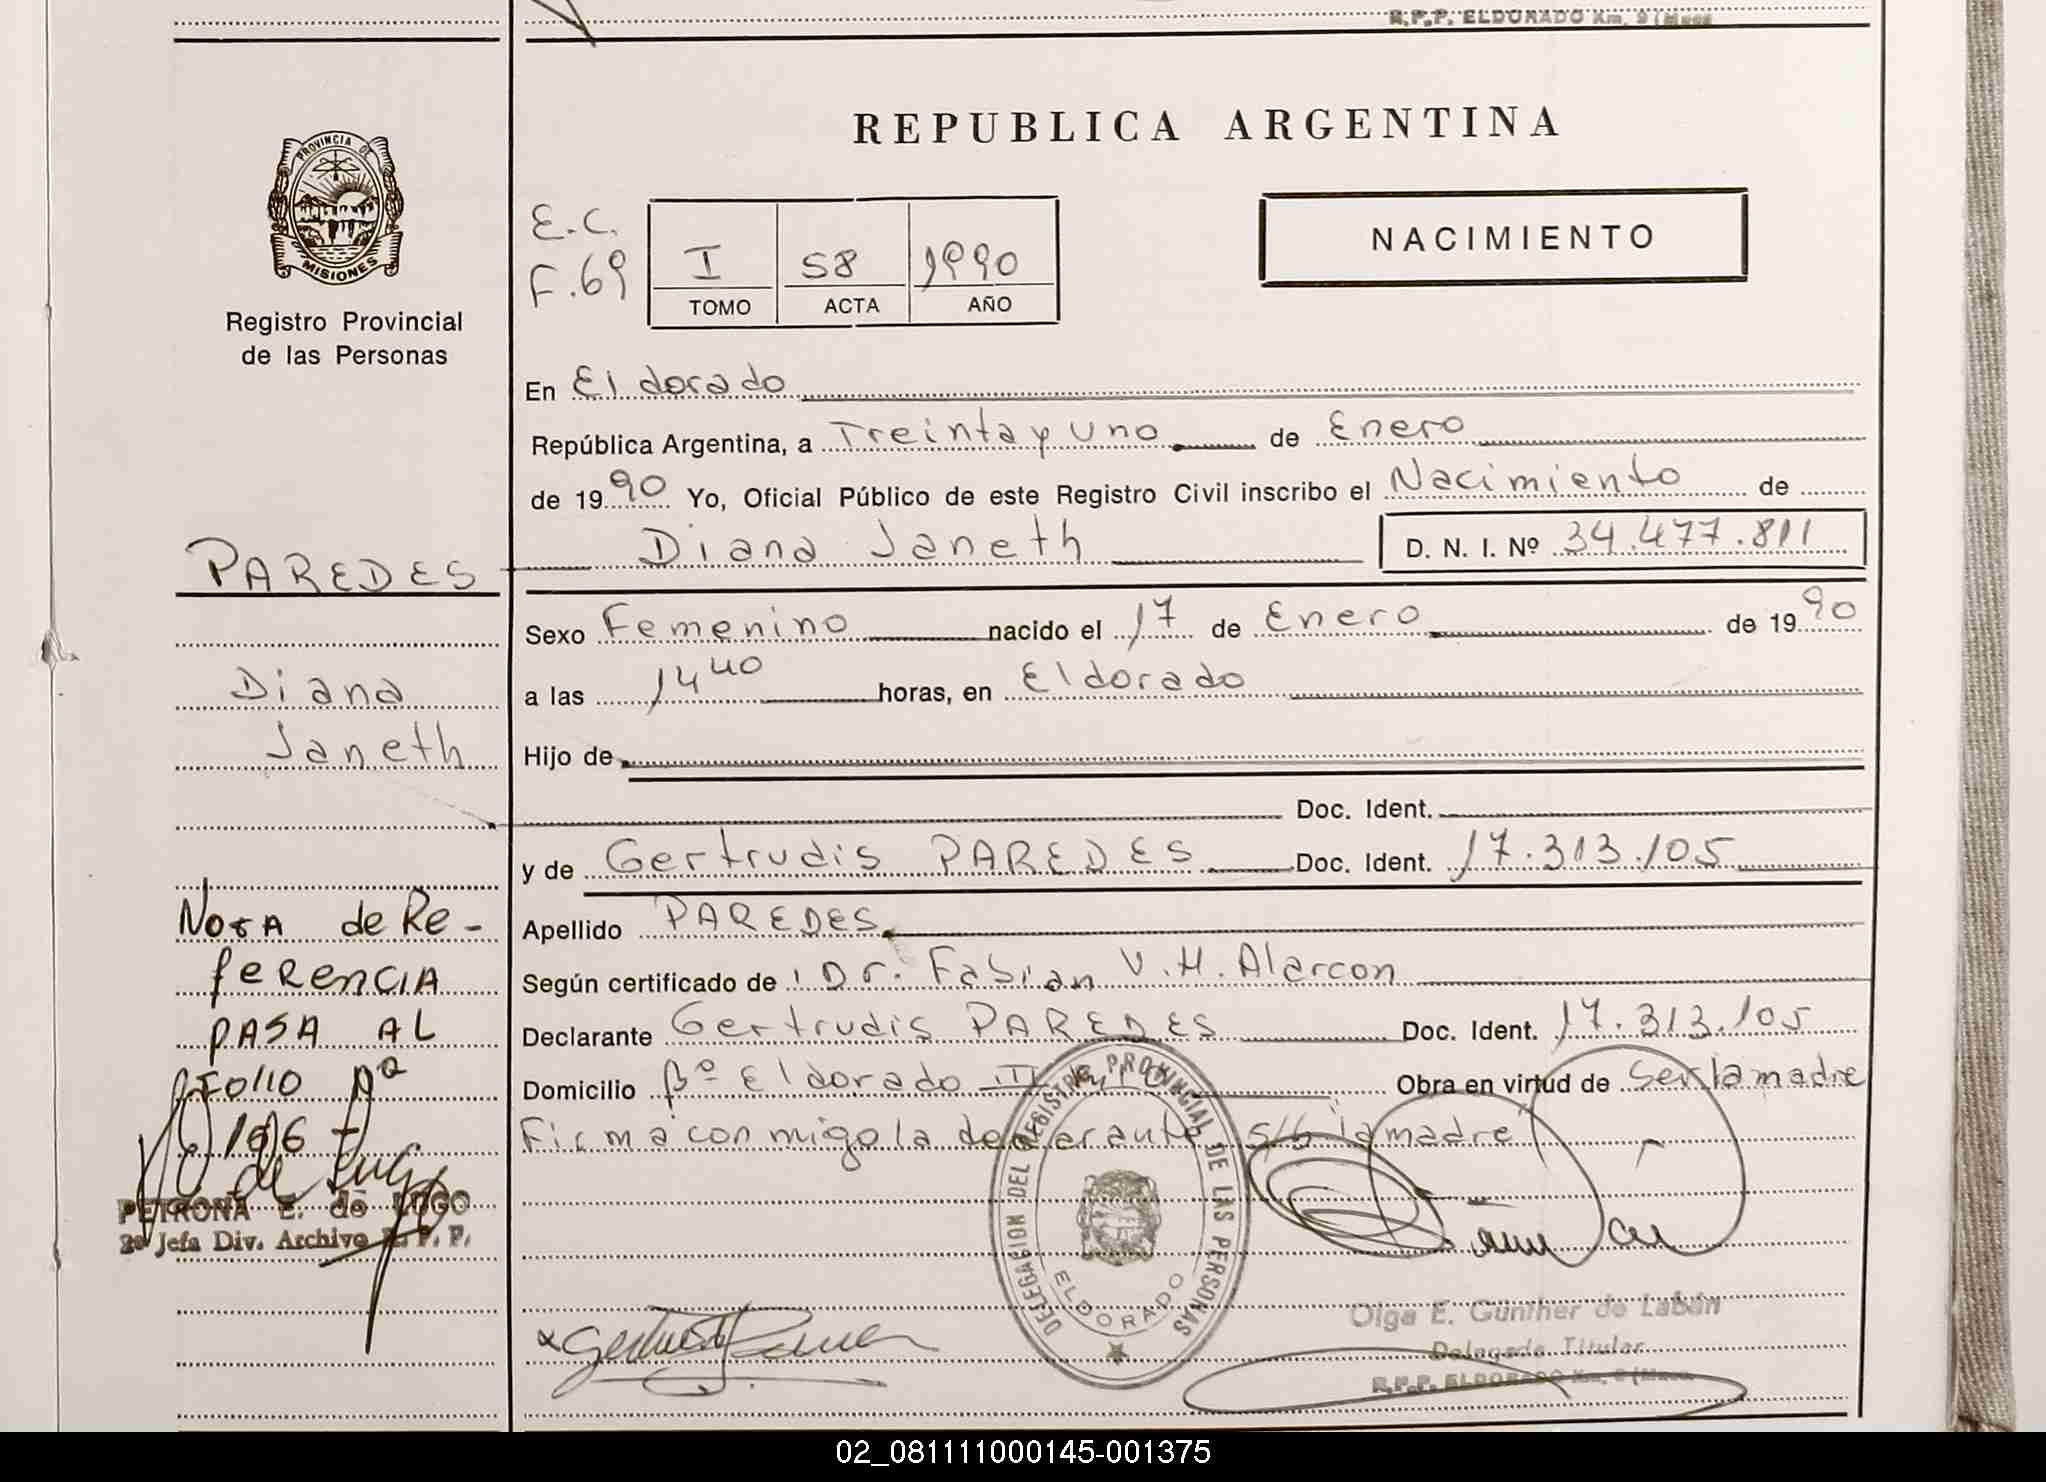 R.P.P. ELDORADO Km. 9 (Mnes
REPUBLICA ARGENTINA
PROVINCIA DE
MISIONES
Registro Provincial
de las Personas
E.C.
F.69
I 58 1990
TOMO ACTA AÑO
NACIMIENTO
En Eldorado
República Argentina, a Treinta y uno de Enero
de 1990 Yo, Oficial Público de este Registro Civil inscribo el Nacimiento de
Diana Janeth D. N. I. Nº 34.477.811
PAREDES
Diana
Janeth
Sexo Femenino nacido el 17 de Enero de 1990
a las 14 40 horas, en Eldorado
Hijo de
Doc. Ident.
y de Gertrudis PAREDES Doc. Ident. 17.313.105
Apellido PAREDES
Según certificado de Dr. Fabian V. H. Alarcon
Declarante Gertrudis PAREDES Doc. Ident. 17.313.105
Domicilio Bº Eldorado II Obra en virtud de ser la madre
Firma conmigo la declarante s/b la madre
NOTA de Re-
ferencia
PASA AL
folio nº
196
PETRONA E. de LUGO
2º Jefa Div. Archivo R. P. P.
DELEGACION DEL REGISTRO PROVINCIAL DE LAS PERSONAS
ELDORADO
Olga E. Günther de Labán
Delegada Titular
R.P.P. ELDORADO Km. 9 (Mnes.
02_081111000145-001375